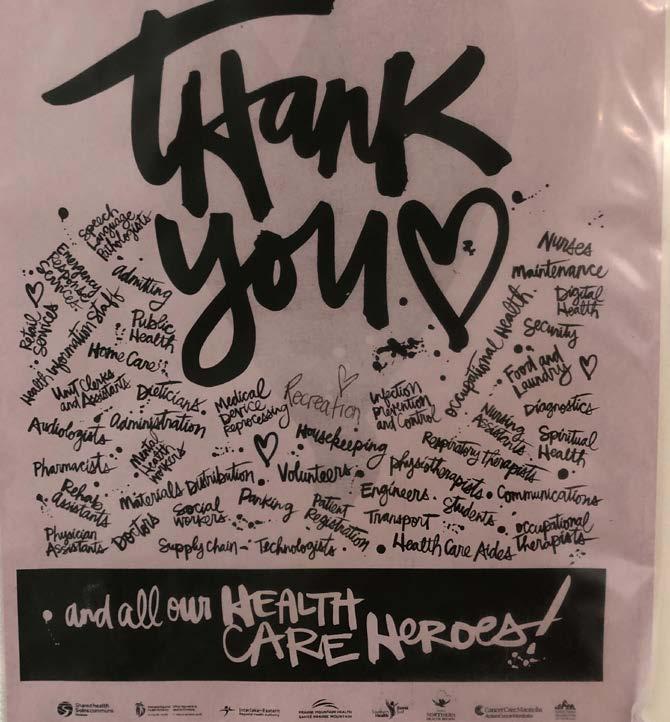 THANK
YOU
Speech
Language
Pathologists
Emergency
Response
Services
Retail
Services
Admitting
Health Information Staff
Public
Health
Home Care
Unit Clerks
and Assistants
Dieticians
Audiologists
Administration
Medical
Device
Reprocessing
Recreation
Infection
Prevention
and Control
Occupational Health
Nurses
Maintenance
Digital
Health
Security
Food and
Laundry
Nursing
Assistants
Diagnostics
Pharmacists
Mental
Health
Workers
Housekeeping
Respiratory Therapists
Spiritual
Health
Rehab
Assistants
Materials Distribution
Volunteers
Physiotherapists
Engineers
Students
Communications
Physician
Assistants
Doctors
Social
Workers
Parking
Patient
Registration
Transport
Occupational
Therapists
Supply Chain
Technologists
Health Care Aides
and all our HEALTH
CARE HEROES!
Shared health
Soins communs
Manitoba
Interlake-Eastern
Regional Health Authority
PRAIRIE MOUNTAIN HEALTH
SANTÉ PRAIRIE MOUNTAIN
Southern
Health
Santé
Sud
NORTHERN
HEALTH REGION
CancerCare Manitoba
ActionCancerManitoba